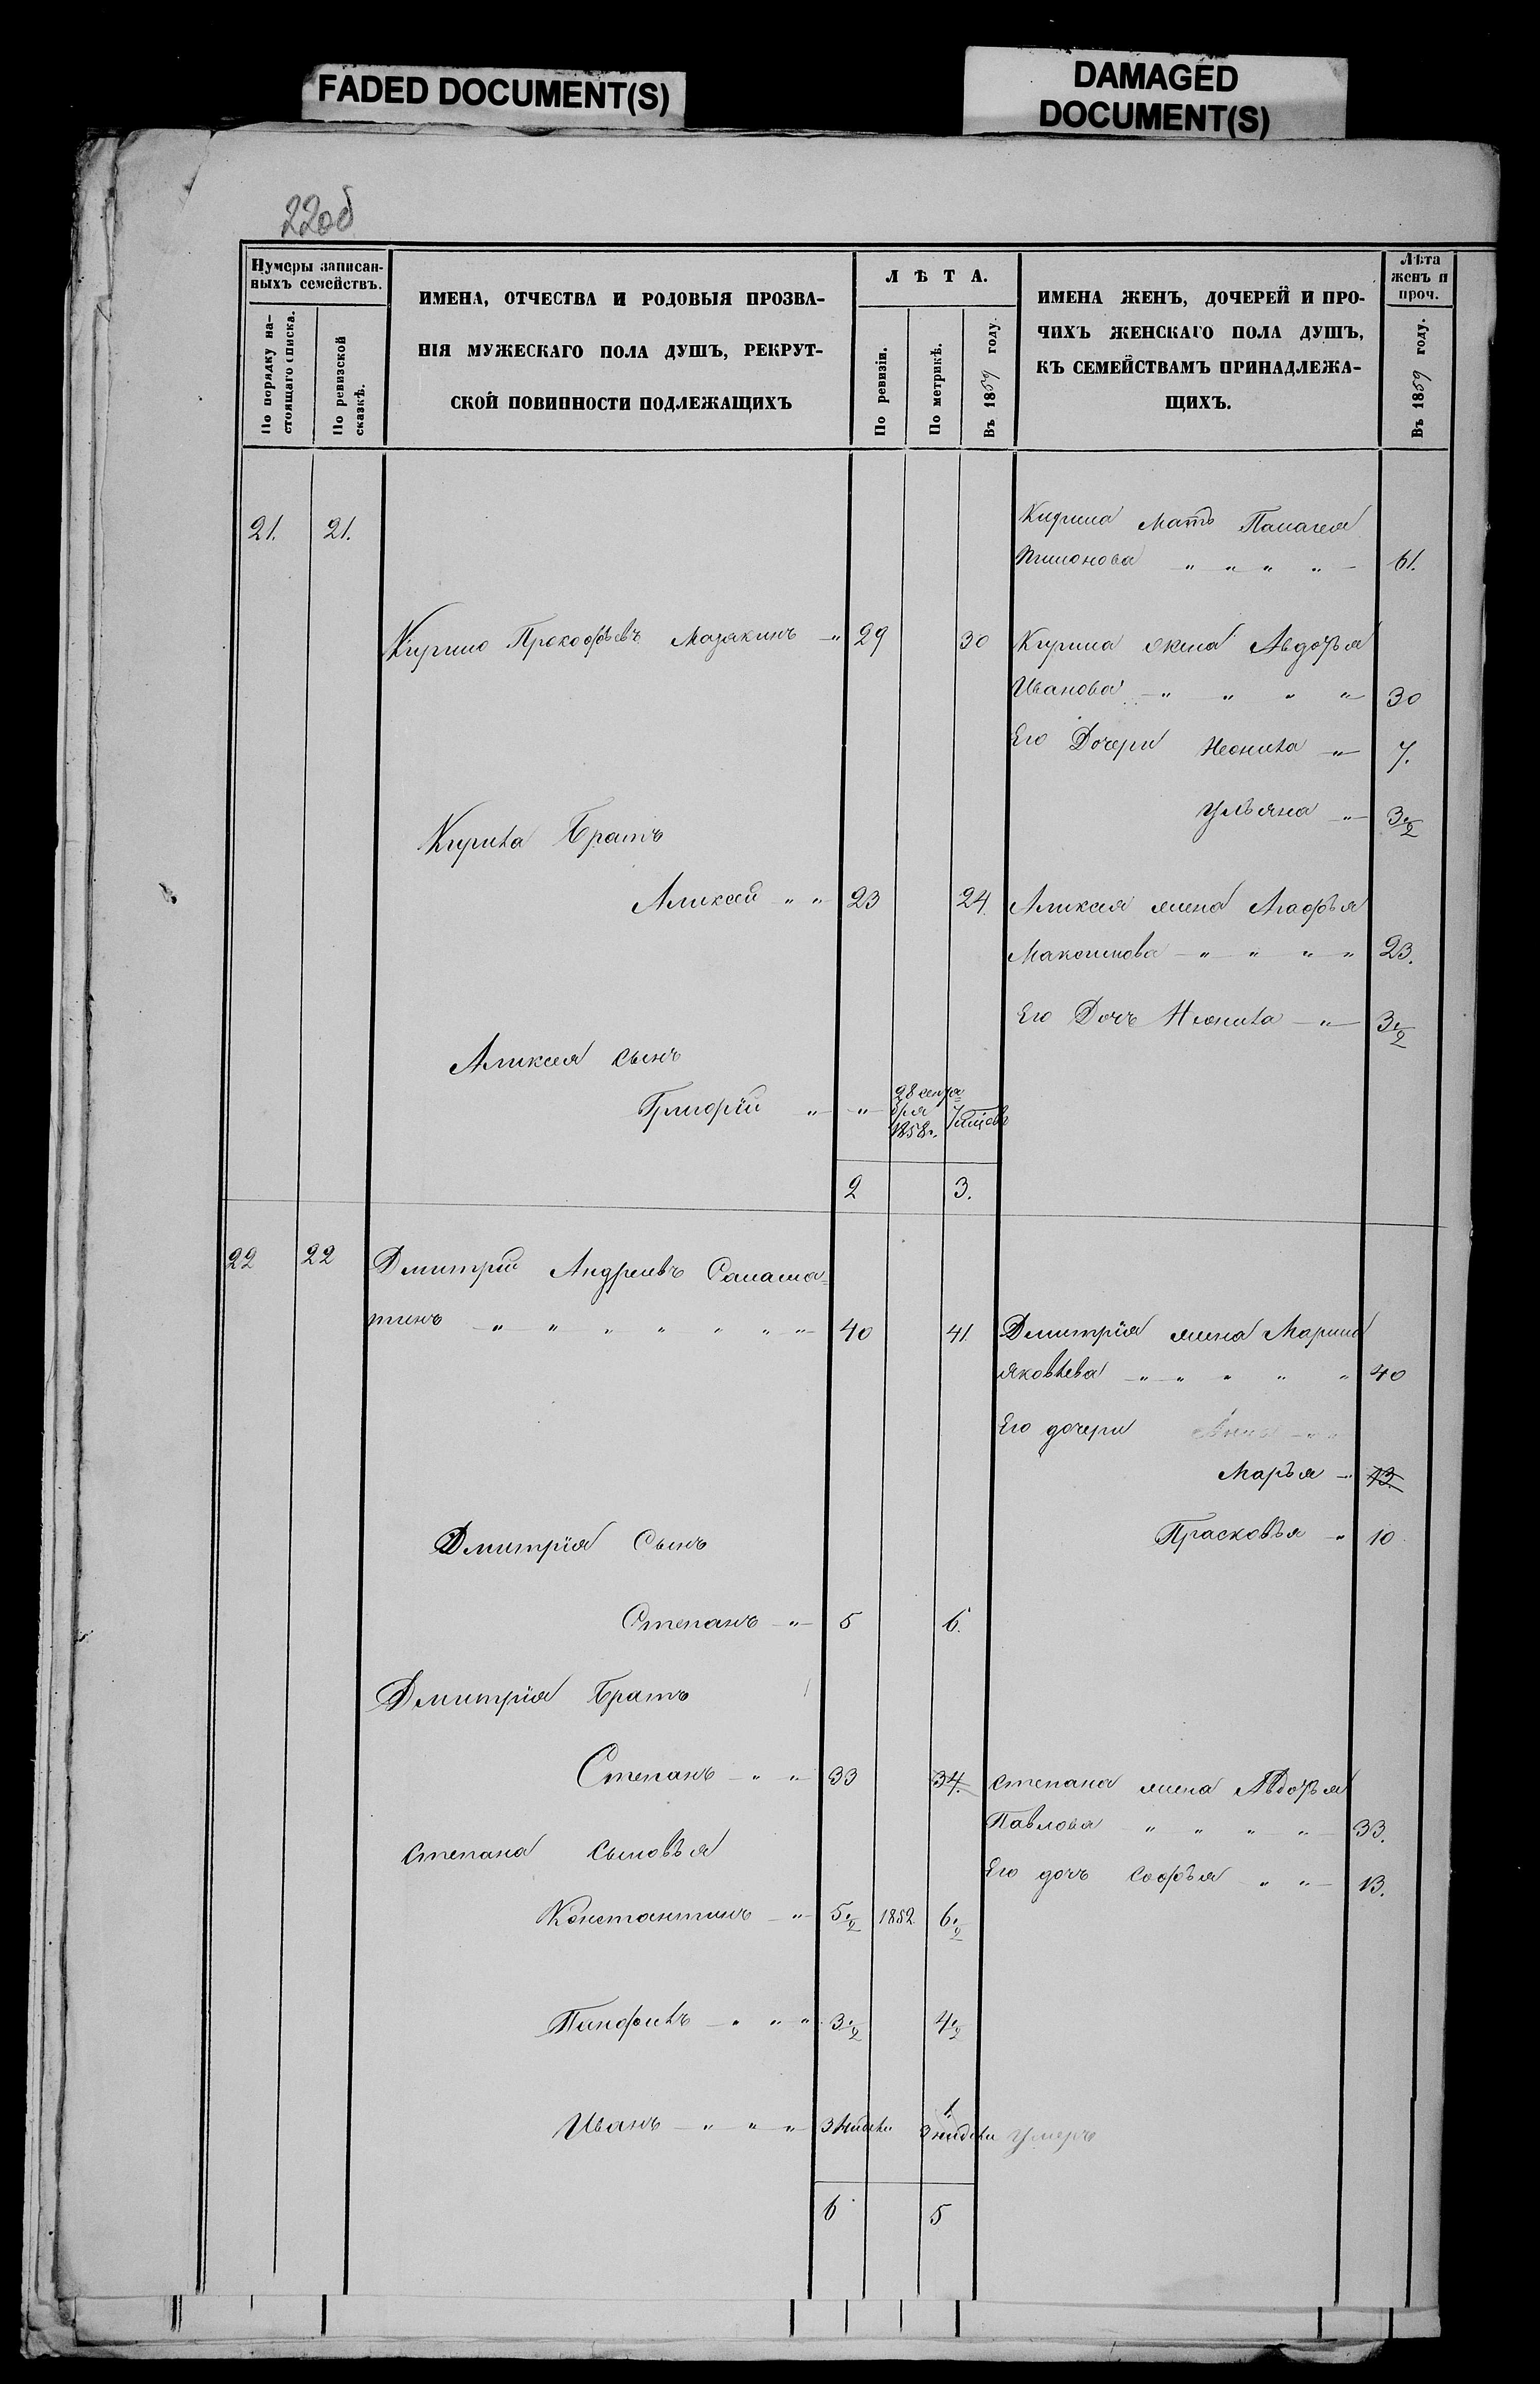 FADED DOCUMENT(S)
DAMAGED
DOCUMENT(S)
22об
Нумеры записан-
ныхъ семействъ.
По порядку на-
стоящаго списка.
По ревизской
сказкѣ.
ИМЕНА, ОТЧЕСТВА И РОДОВЫЯ ПРОЗВА-
НІЯ МУЖЕСКАГО ПОЛА ДУШЪ, РЕКРУТ-
СКОЙ ПОВИННОСТИ ПОДЛЕЖАЩИХЪ
ЛѢТА.
По ревизіи.
По метрикѣ.
Въ 1859 году.
ИМЕНА ЖЕНЪ, ДОЧЕРЕЙ И ПРО-
ЧИХЪ ЖЕНСКАГО ПОЛА ДУШЪ,
КЪ СЕМЕЙСТВАМЪ ПРИНАДЛЕЖА-
ЩИХЪ.
Лѣта
женъ и
проч.
Въ 1859 году.
21. 21. Кирила Мать Палагея
" " " " 61.
Кирило Прокофьевъ Мазякинъ " 29 30 Кирила жена Авдотья
Иванова " " " " 30
Его Дочери Неонила " 7.
Ульяна " 3 1/2
Кирила Братъ
Аликсей " " 23 24. Аликсея жена Агафья
Максимова " " " " 23.
Его Дочь Неонила " 3 1/2
Аликсея сынъ
Григорій " " 28 сентя=
бря
1858.
2 3.
22 22 Дмитрій Андреевъ Саламa=
тинъ " " " " " " " 40 41. Дмитрія жена Марина
Яковлева " " " " " 40
Его дочери
Марья " 13.
Прасковья " 10
Дмитрія Сынъ
Степанъ " 5 6.
Дмитрія Братъ
Степанъ " " 33 34. Степана жена Авдотья
Павлова " " " " 33.
Степана Сыновья
Его дочь Софья " " 13.
Константинъ " 5 1/2 1852 6 1/2
Панфилъ " " " 3 1/2 4 1/2
1
Иванъ " " " 3 недели 3 недели умеръ
6 5